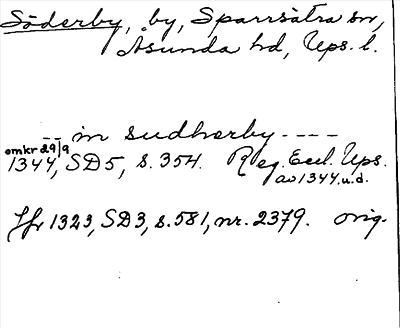 Söderby, by, Sparrsätra sn,
Åsunda hd, Ups. l.
-- in sudherby ----
omkr 29/9
1344, SD5, s. 354. Reg. Eccl. Ups.
av 1344. u.d.
Jfr 1323, SD3, s. 581, nr. 2379. orig.